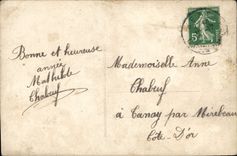 Bonne et heureuse
année
Mathilde
Chabeuf
Mademoiselle Anne
Chabeuf
à Canay par Mirebeau
Côte d'Or
5